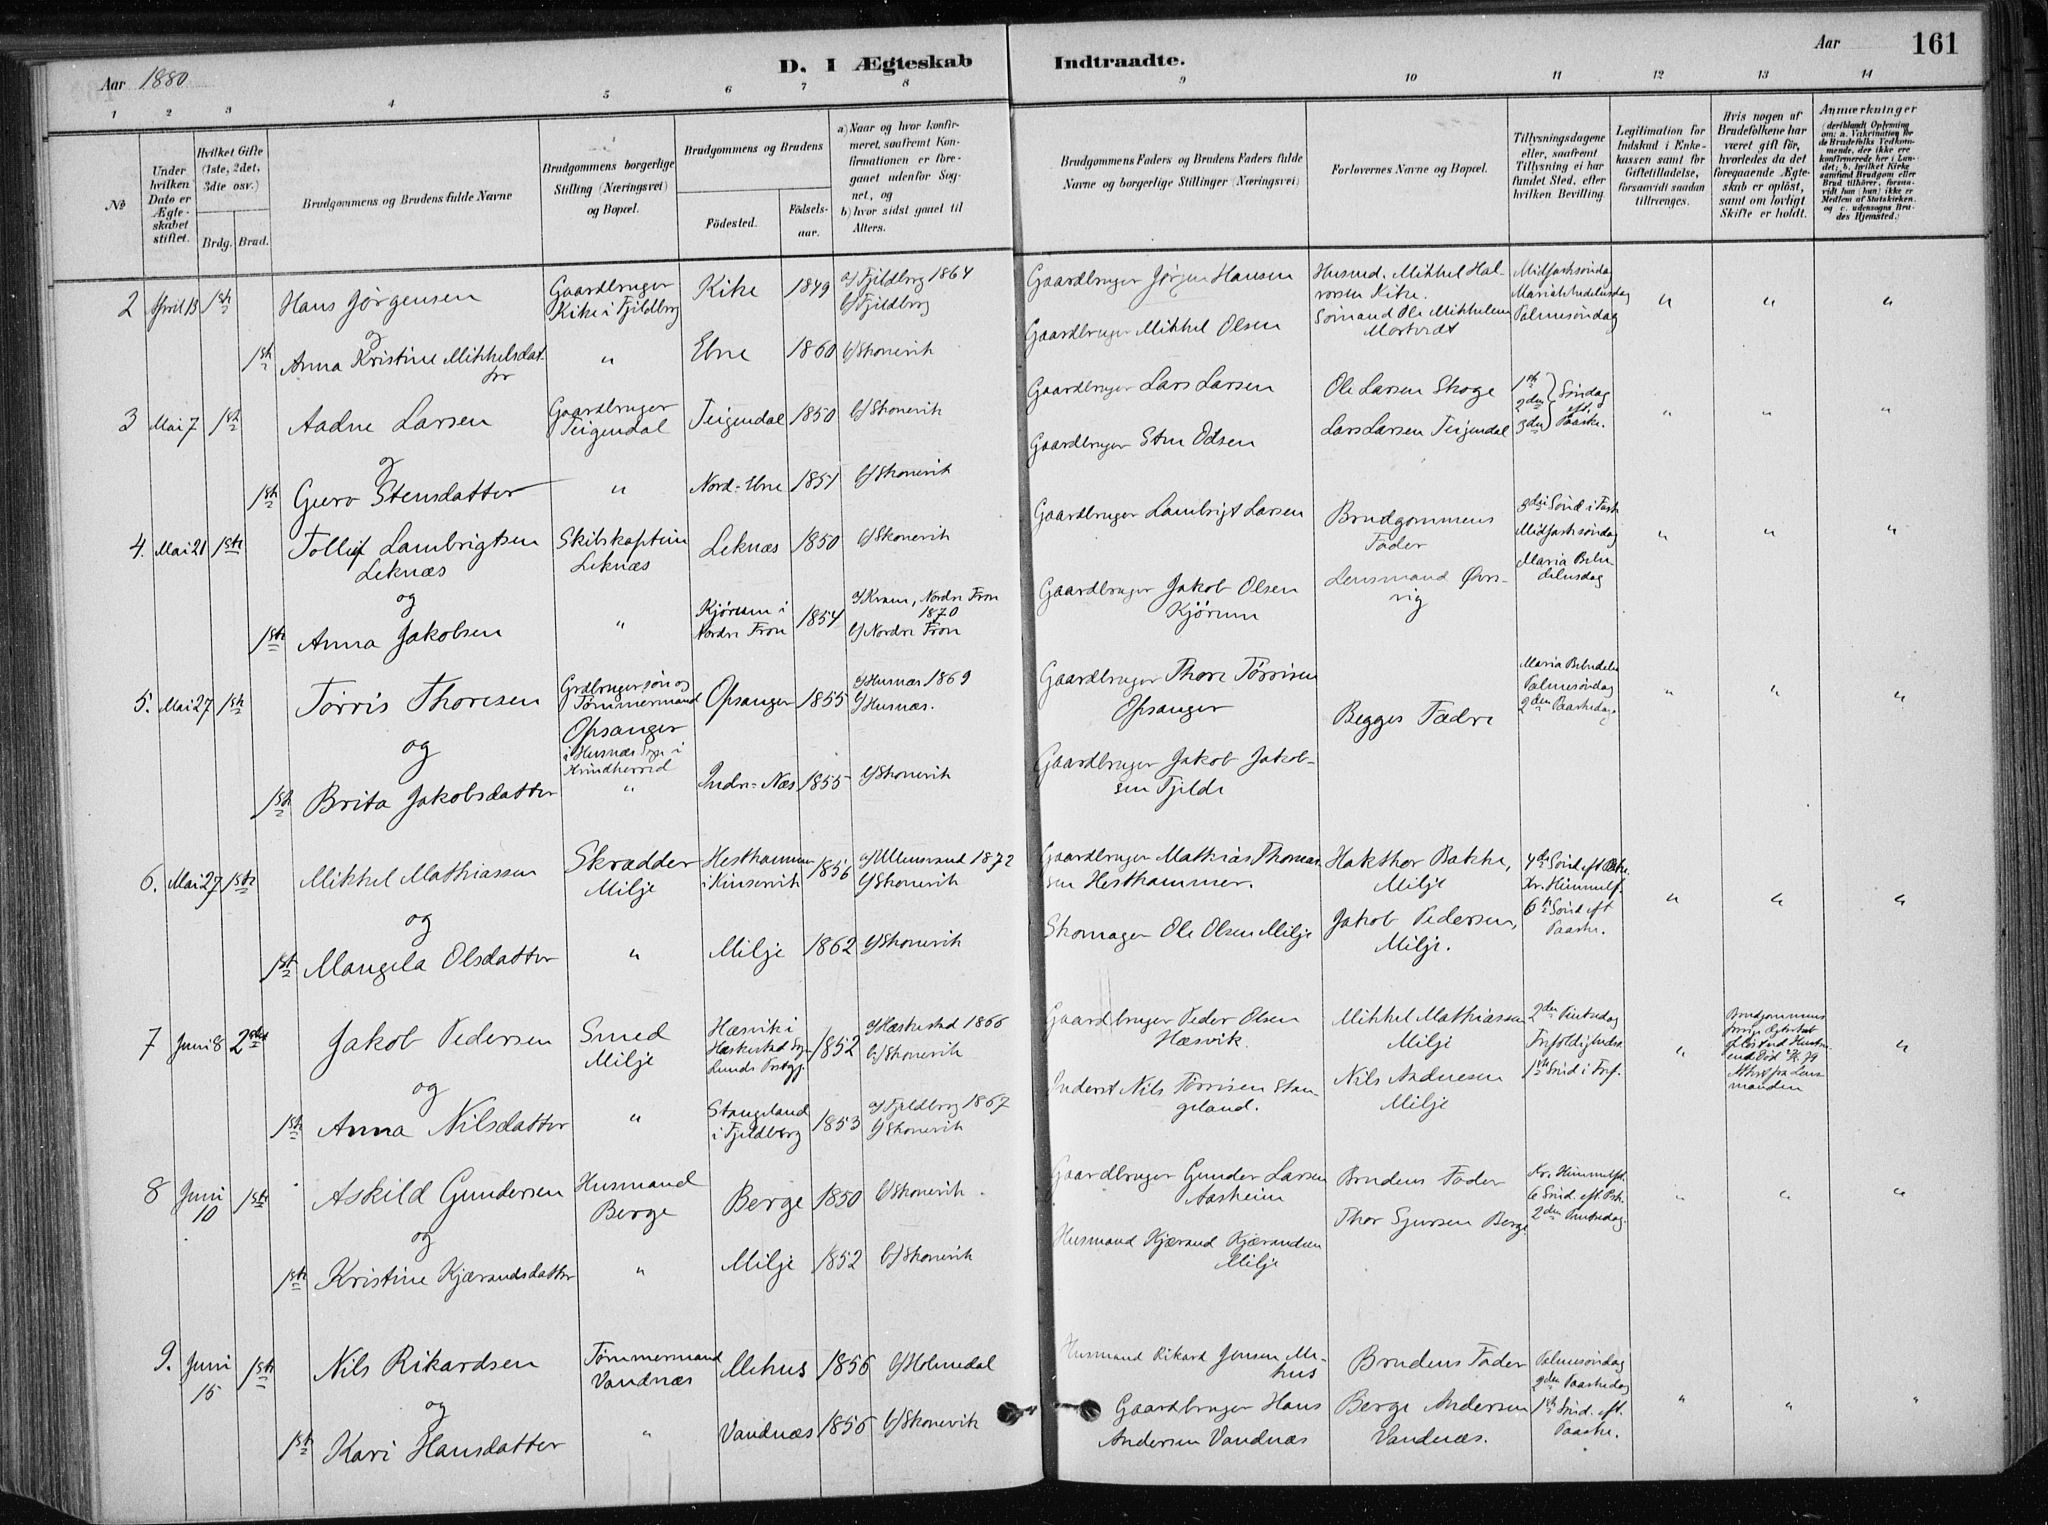 Aar 1880
D. I Ægteskab Indtraadte.
Aar
161
1 2 3 4 5 6 7 8 9 10 11 12 13 14
No
Under hvilken Dato er Ægteskabet stiftet.
Hvilket Gifte (1ste, 2det, 3die osv.)
Brdg. Brud.
Brudgommens og Brudens fulde Navne
Brudgommens borgerlige Stilling (Næringsvei) og Bopæl.
Brudgommens og Brudens
Fødested.
Fødsels-aar.
a) Naar og hvor konfirmeret, saafremt Konfirmationen er foregaaet udenfor Sognet, og
b) hvor sidst gaaet til Alters.
Brudgommens Faders og Brudens Faders fulde Navne og borgerlige Stillinger (Næringsvei)
Forlovernes Navne og Bopæl.
Tillysningsdagene eller, saafremt Tillysning ei har fundet Sted, efter hvilken Bevilling
Legitimation for Indskud i Enkekassen samt for Giftetilladelse, forsaavidt saadan tiltrænges.
Hvis nogen af Brudefolkene har været gift før, hvorledes da det foregaaende Ægteskab er opløst, samt om lovligt Skifte er holdt.
Anmærkninger
2 April 13 1ste Hans Jørgensen Gaardbruger Kike i Fjeldberg Kike 1849 a) Fjeldberg 1864 b) Fjeldberg
Gaardbruger Jørgen Hansen
Husmd. Mikkel Halvorsen Kike.
Midfastesøndag
og
1ste Anna Kristine Mikkelsdatter " Ebne 1860 b) Skonevik
Gaardbruger Mikkel Olsen
Sømand Ole Mikkelsen
Palmesøndag " " "
3 Mai 7 1ste Aadne Larsen Gaardbruger Teigendal Teigendal 1850 b) Skonevik
Gaardbruger Lars Larsen
Ole Larsen Skoge
1ste 2den 3die Søndag eft. Paaske.
og
1ste Guro Stensdatter " Nord-Ebne 1851 b) Skonevik
Gaardbruger Sten Odsen
Lars Larsen Teigendal " " "
4. Mai 21 1ste Tollef Lambrigtsen Leknæs Skibskaptein Leknæs Leknæs 1850 b) Skonevik
Gaardbruger Lambrigt Larsen
Brudgommens Fader
3die Sønd i Faste
Midfastesøndag
Maria Bebudelsesdag
og
1ste Anna Jakobsen " Kjørum i Nordre Fron 1854 a) Kvam, Nordre Fron 1870 b) Nordre Fron
Gaardbruger Jakob Olsen Kjørum
Lensmand
" " "
5. Mai 27 1ste Tørris Thoresen Grdbrugersøn og Tømmermand Opsanger i Husnæs Sogn i Kvindherred Opsanger 1855 a) Husnæs 1869 b) Husnæs.
Gaardbruger Thore Tørrisen Opsanger
Begges Fædre
Maria Bebudelse
Palmesøndag
2den Paaskedag
og
1ste Brita Jakobsdatter " Indre-Næs 1855 b) Skonevik
Gaardbruger Jakob Jakobsen Fjelde
" " "
6. Mai 27 1ste Mikkel Mathiassen Skrædder Milje Hesthammer i Kinservik 1856 a) Ullensvand 1872 b) Skonevik
Gaardbruger Mathias Thomassen Hesthammer.
Hakthor Bakke, Milje
4de Sønd eft Paaske.
Kr. Himmelf.
6te Sønd eft Paaske.
og
1ste Mangela Olsdatter " Milje 1862 b) Skonevik
Skomager Ole Olsen Milje
Jakob Pedersen, Milje. " " "
7 Juni 8 2det Jakob Pedersen Smed Milje Hæsvik i Hæskestad Sogn Lunds Prstgj. 1852 a) Hæskestad 1866 b) Skonevik
Gaardbruger Peder Olsen Hæsvik.
Mikkel Mathiassen Milje
2den Pintsedag
Trefoldighedss.
1ste Sønd i Tref.
Brudgommens forrige Ægteskab
og
1ste Anna Nilsdatter " Stangeland i Fjeldberg 1853 a) Fjeldberg 1867 b) Skonevik
Inderst Nils Tørrisen Stangeland.
Nils Aadnesen Milje " "
8 Juni 10 1ste Askild Gundersen Husmand Berge Berge 1850 b) Skonevik.
Gaardbruger Gunder Larsen Aasheim
Brudens Fader
Kr. Himmelfrt.
6 Sønd. eft. Psk.
2den Pintsedag.
og
1ste Kristine Kjærandsdatter " Milje 1852 b) Skonevik
Husmand Kjærand Kjærandsen Milje
Thor Sjursen Berge " " "
9. Juni 15 1ste Nils Rikardsen Tømmermand Vandnæs Mehus 1856 b) Holmedal
Husmand Rikard Jensen Mehus
Brudens Fader
Palmesøndag
2den Paaskedag
1ste Sønd. eft. Paaske.
og
1ste Kari Hansdatter " Vandnæs 1856 b) Skonevik
Gaardbruger Hans Andersen Vandnæs
Berge Andersen Vandnæs. " " "